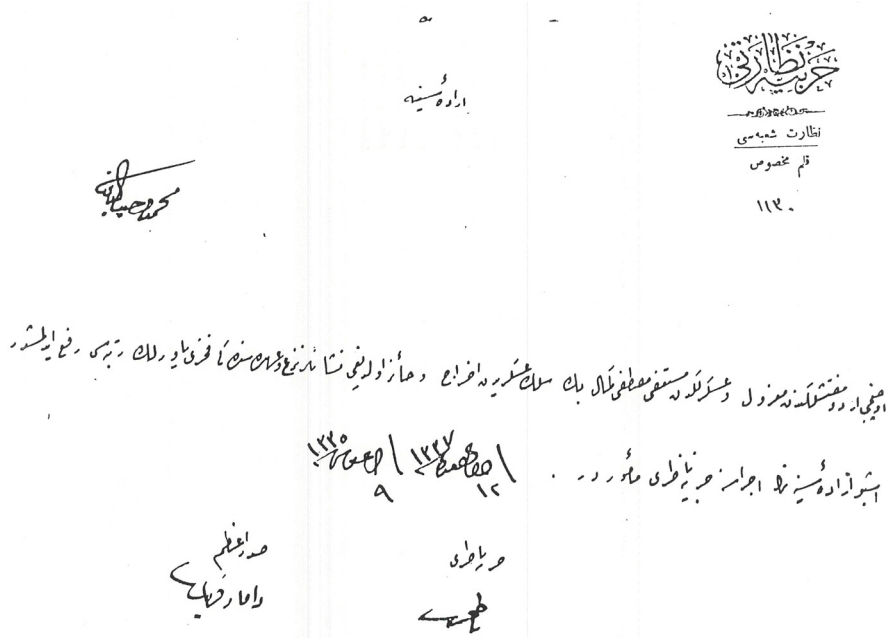 حربيه نظارتی
نظارت شعبه‌سی
قلم مخصوص
١١٣٠
ارادهٔ سنیه
محمد وحیدالدین
اوچنجی اردو مفتشلكندن معزول و عسكرلكدن مستعفی مصطفی كمال بك سلك عسكریدن اخراج و حائز اولدیغی نشانلر نزع و عهده‌سنده‌كی فخری یاورلك رتبه‌سی رفع ایدلمشدر
اشبو ارادهٔ سنیه‌نك اجراسنه حربیه ناظری مأموردر .
١٣٣٧ / ١٢
اغستوس ١٣٣٥ / ٩
حربیه ناظری
صدر اعظم
داماد فرید